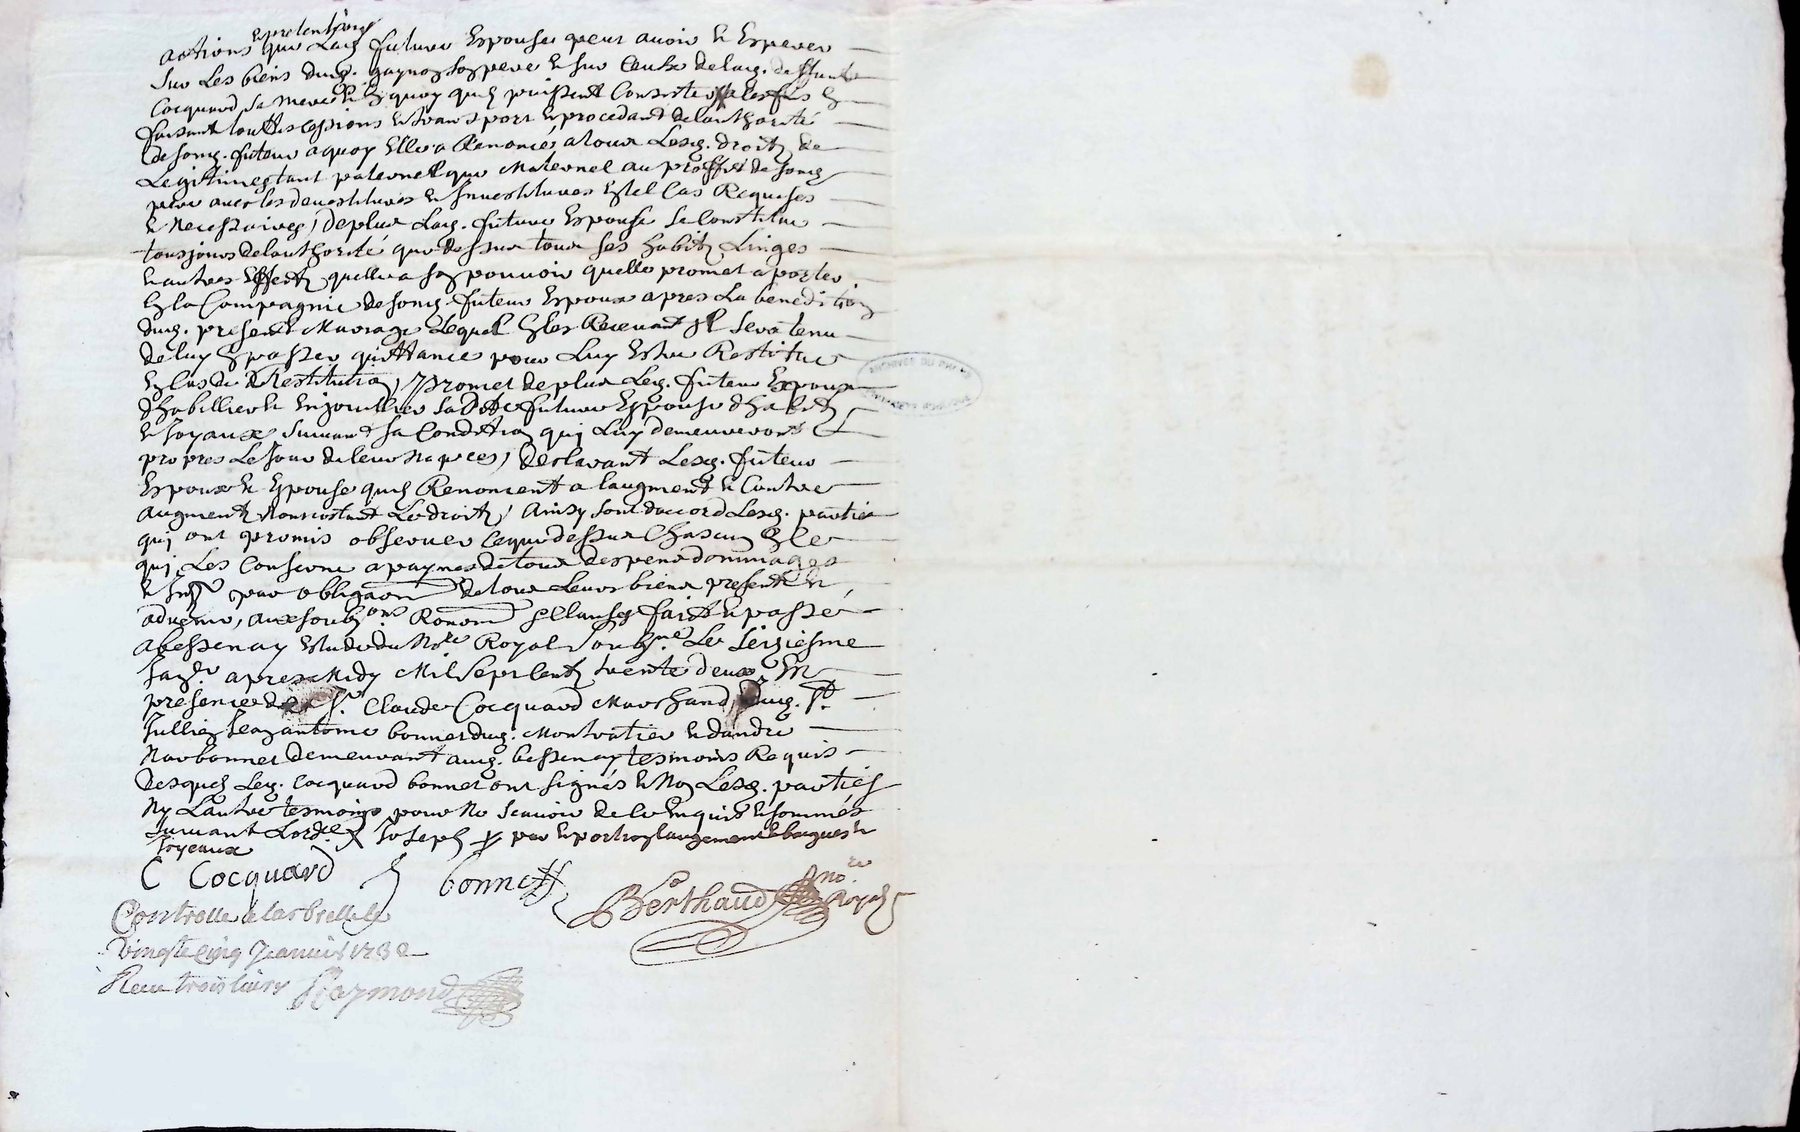 et pretentions
actions que lad. future Espouse peut avoir et Esperer
sur les biens dud. gaynon son pere et sur Ceulx delad. deffunte
Cocquard sa mere et En quoy quils puissent Consister
faisant touttes cessions et transport et procedant de lauthorité
de sond. futeur a quoy Elle a Renoncé a tous Lesd. droits de
Legitimes tant paternel que Maternel au proffit de sond.
pere avec les devestitures et Investitures En tel Cas Requises
et Necessaires, de plus Lad. future Espouse se Constitue
tousjours de lauthorité que dessus tous ses habits Linges
et autres Effects quelle a son pouvoir quelle promet aporter
En la Compagnie de sond. futeur Espoux apres La benediction
dud. present Mariage Lequel En les Recevant Il sera tenu
de luy En passer quittance pour Luy Estre Restitué
En Cas de Restitution, Promet de plus Led. futeur Espoux
dhabillier et Enjouillier sa ditte future Espouse dhabits
et Joyaux suivant sa Condition qui Luy demeureront
propres Le jour de leur nopces, declarant Lesd. futeur
Espoux et Espouse quils Renoncent a laugment et Contre
augment Nonnostant Le droits, Ainsy sont daccord Lesd. parties
qui ont promis observer Ce que dessus Chascun En Ce
qui Les Conserne a paynes de tous despens dommages
et Int. par obligaon de tous Leurs biens presents et
advenir, aux soubons Renom et Clauses faict et passé
abessenay Estude du Nore Royal soubne Le seiziesme
Janr apres Midy Mil sept Cents trente deux En
presence de Sr. Claude Cocquard Marchand dud. St.
Jullien Jean antoine bonnet dud. Montratier et dandre
Narbonnet demeurant aud. bessenay tesmoins Requis
desquels Led. Cocquard bonnet ont signés et Non Lesd. parties
Ny Lautre tesmoins pour Ne scavoir de ce Enquis et sommés
suivant Lordce Joseph par et portion laugement et bagues et
Joyeaux
C Cocquard bonnet
Berthaud nore Royal
Controlle a Larbrelle le
vingt cinq Janvier 1732
Receu trois livres Raymond